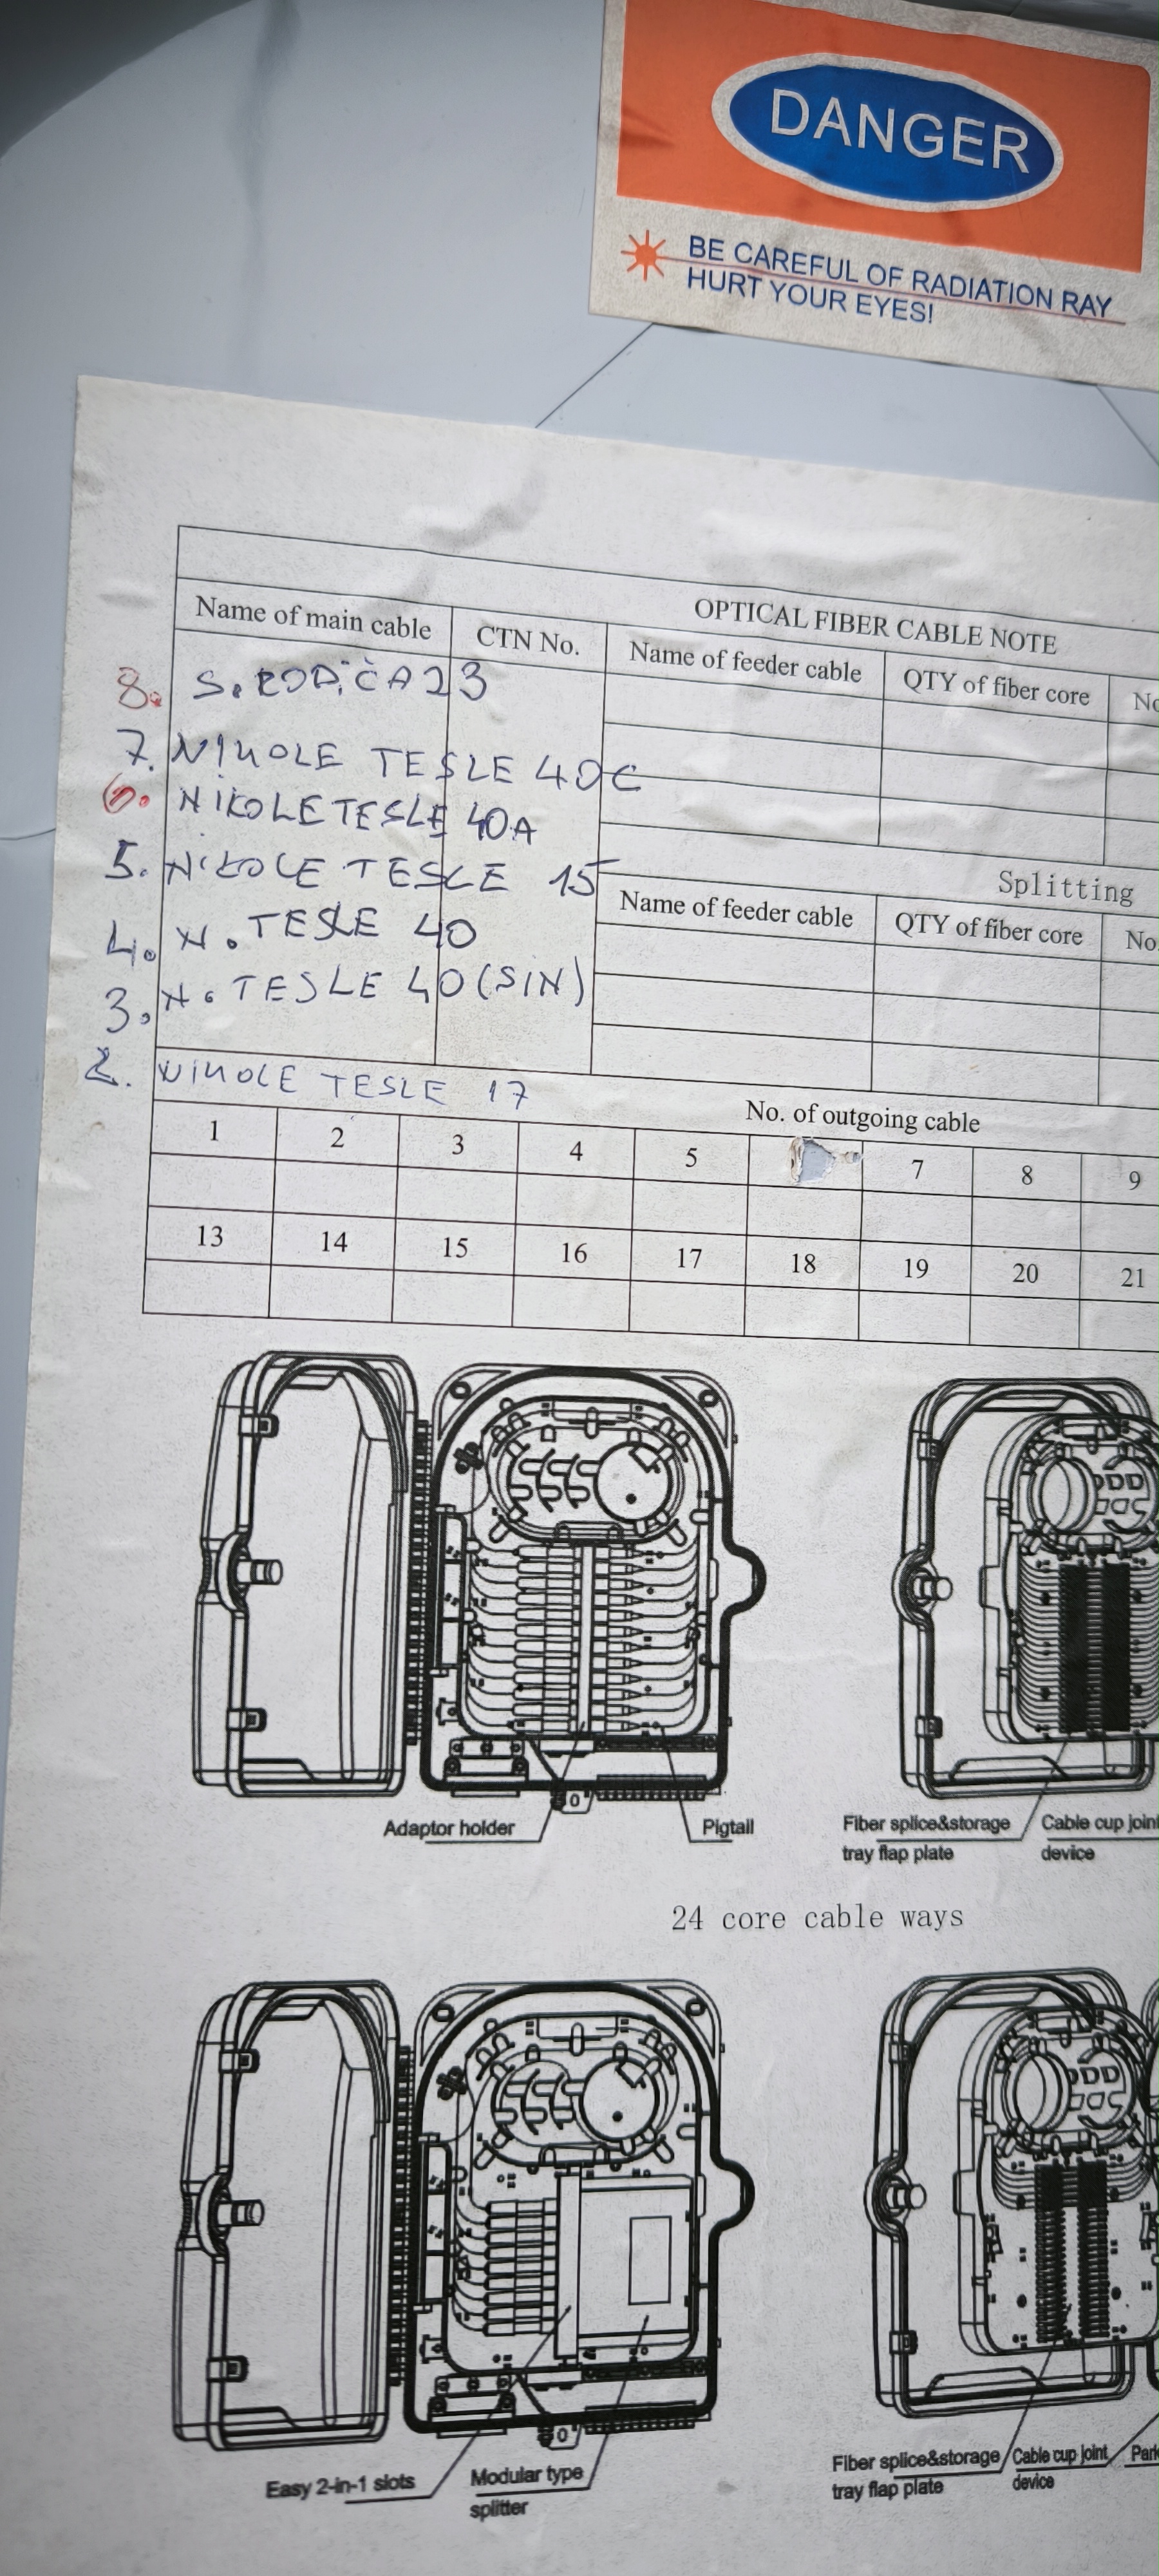 DANGER
BE CAREFUL OF RADIATION RAY
HURT YOUR EYES!
OPTICAL FIBER CABLE NOTE
Name of main cable CTN No. Name of feeder cable QTY of fiber core No
8. S. RODIĆA 23
7. NIKOLE TESLE 40C
6. NIKOLE TESLE 40A
5. NIKOLE TESLE 15
Splitting
Name of feeder cable QTY of fiber core No.
4. N. TESLE 40
3. N. TESLE 40 (SIN)
2. NIKOLE TESLE 17
No. of outgoing cable
1 2 3 4 5 7 8 9
13 14 15 16 17 18 19 20 21
Adaptor holder Pigtail
Fiber splice&storage Cable cup joint
tray flap plate device
24 core cable ways
Easy 2-in-1 slots Modular type
splitter
Fiber splice&storage Cable cup joint
tray flap plate device